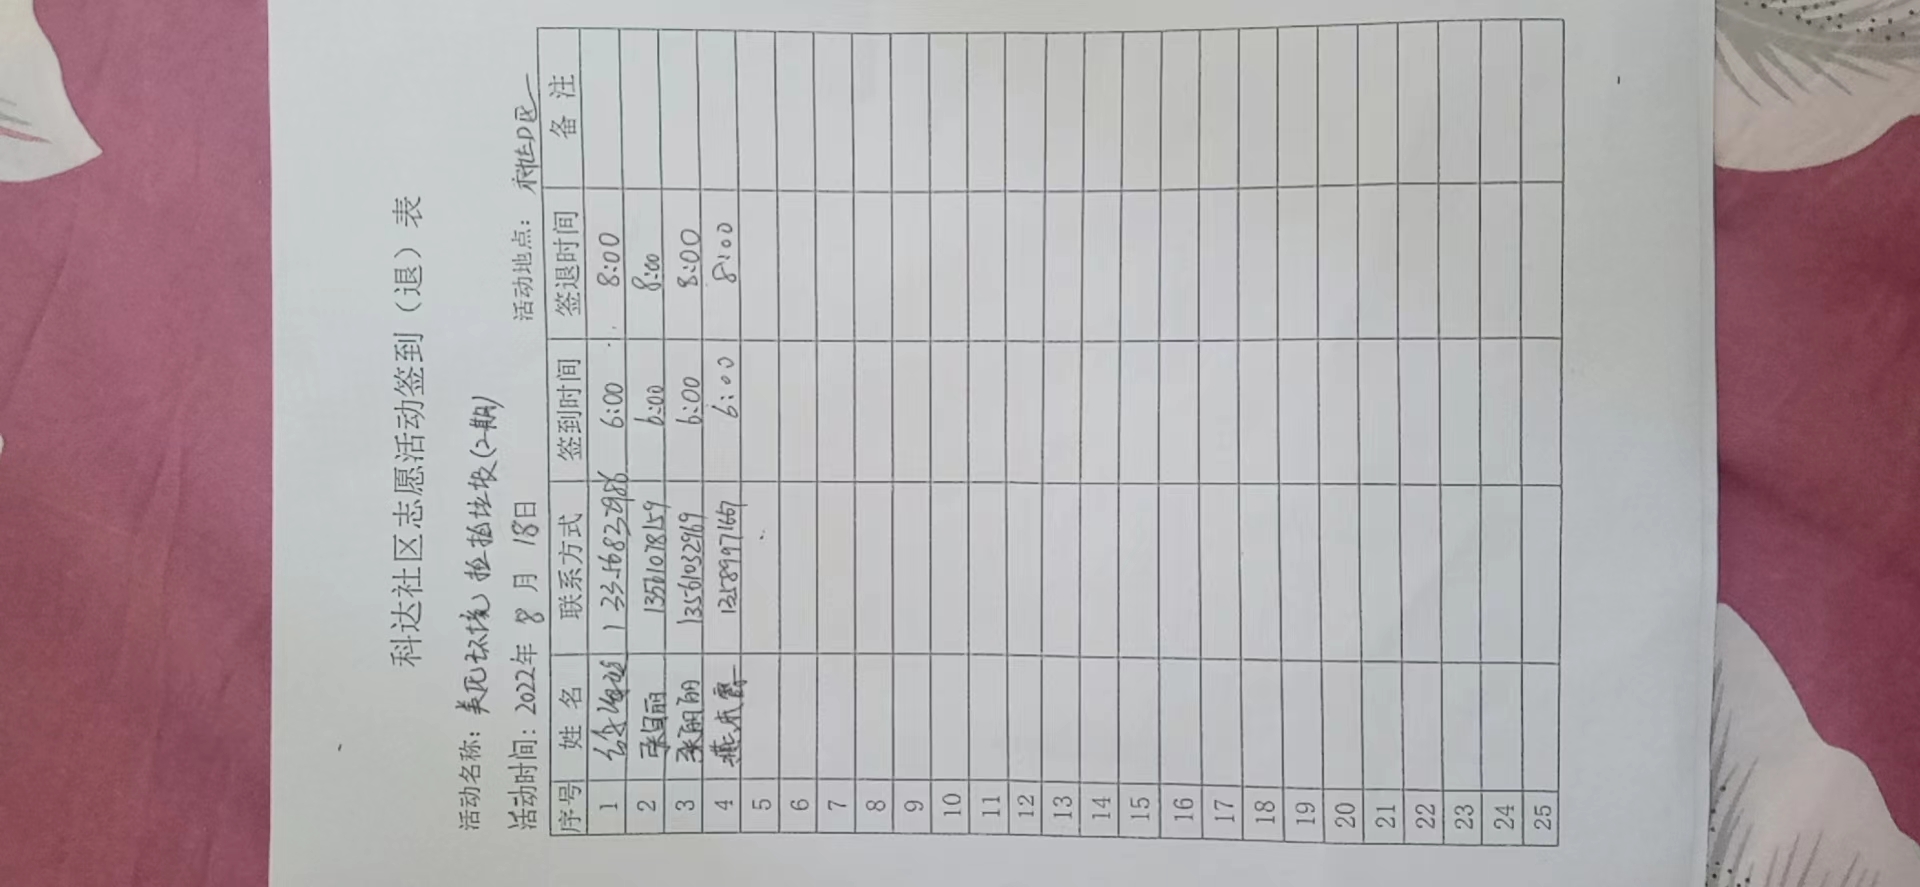 科达社区志愿活动签到（退）表
活动名称：美化环境 捡拾垃圾(2期)
活动时间：2022年 8 月 18日 活动地点：科达D区
序号 姓名 联系方式 签到时间 签退时间 备注
1 6:00 8:00
2 张自丽 13561078159 6:00 8:00
3 张丽丽 13561032969 6:00 8:00
4 13589971667 6:00 8:00
5
6
7
8
9
10
11
12
13
14
15
16
17
18
19
20
21
22
23
24
25